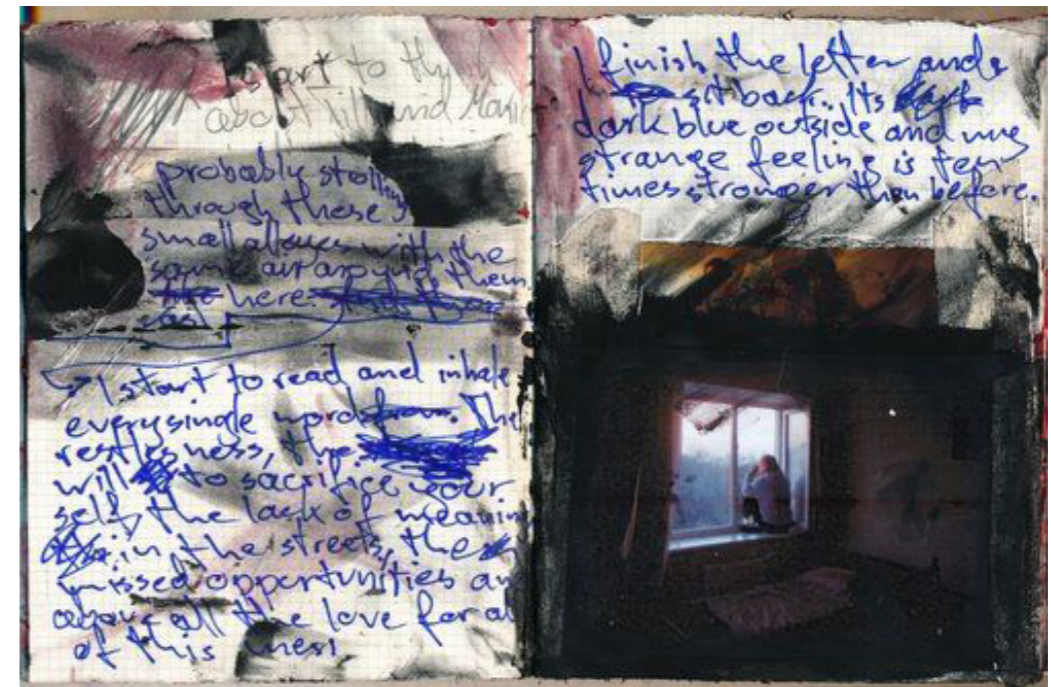 I start to
about lill and
probably
through these
small alleys with the
same air around them
here.
I start to read and inhale
every single word from. The
restlesness, the
will to sacrifice your
self, the lack of
in the streets, the
missed opportunities an
above all the love for al
of this mess
I finish the letter and
sit back. Its
dark blue outside and my
strange feeling is ten
times stronger then before.